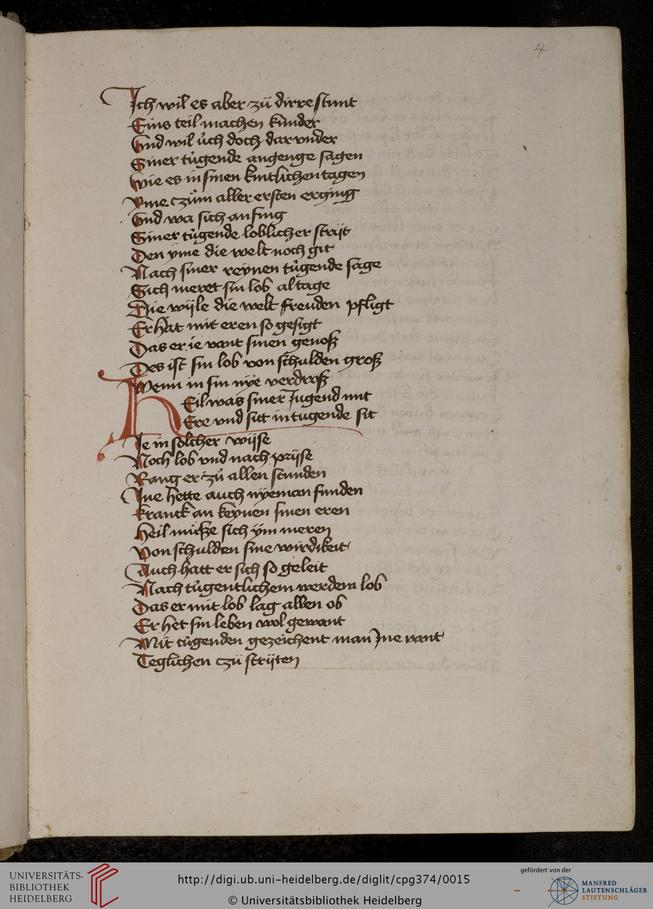 4
Ich wil es aber zü dirre stunt
Eins teil machen kunder
Vnd wil üch doch dar vnder
Siner tügende angenge sagen
Wie es in sinen kintlichen tagen
Yme czům aller ersten erging
Vnd wa sich an fing
Siner tügende loblicher strijt
Den yme die welt noch git
Nach siner reynen tügende sage
Sich meret sin lob al tage
Die wijle die welt freuden pfligt
Er hat mit eren so gesigt
Das er ie vant sinen genoß
Des ist sin lob von schulden groß
Wenn in sin nye verdroß
Keil was siner Jugend mit
Ere vnd sitt in tugende sit
Je in solcher wijse
Noch lob vnd nach prijse
Rang er zü allen stunden
Jne hette auch nyeman funden
Kranck an keynen sinen eren
Heil müsze sich ÿm meren
Von schulden sine wirdikeit
Auch hatt er sich so geleit
Nach tügentlichem werdem lob
Das er mit lob lag allen ob
Er het sin leben wol gewant
Mit tügenden gezeichent man Jne vant
Teglichen czü strijten
UNIVERSITÄTS-
BIBLIOTHEK
HEIDELBERG
http://digi.ub.uni-heidelberg.de/diglit/cpg374/0015
© Universitätsbibliothek Heidelberg
gefördert von der
MANFRED
LAUTENSCHLÄGER
STIFTUNG